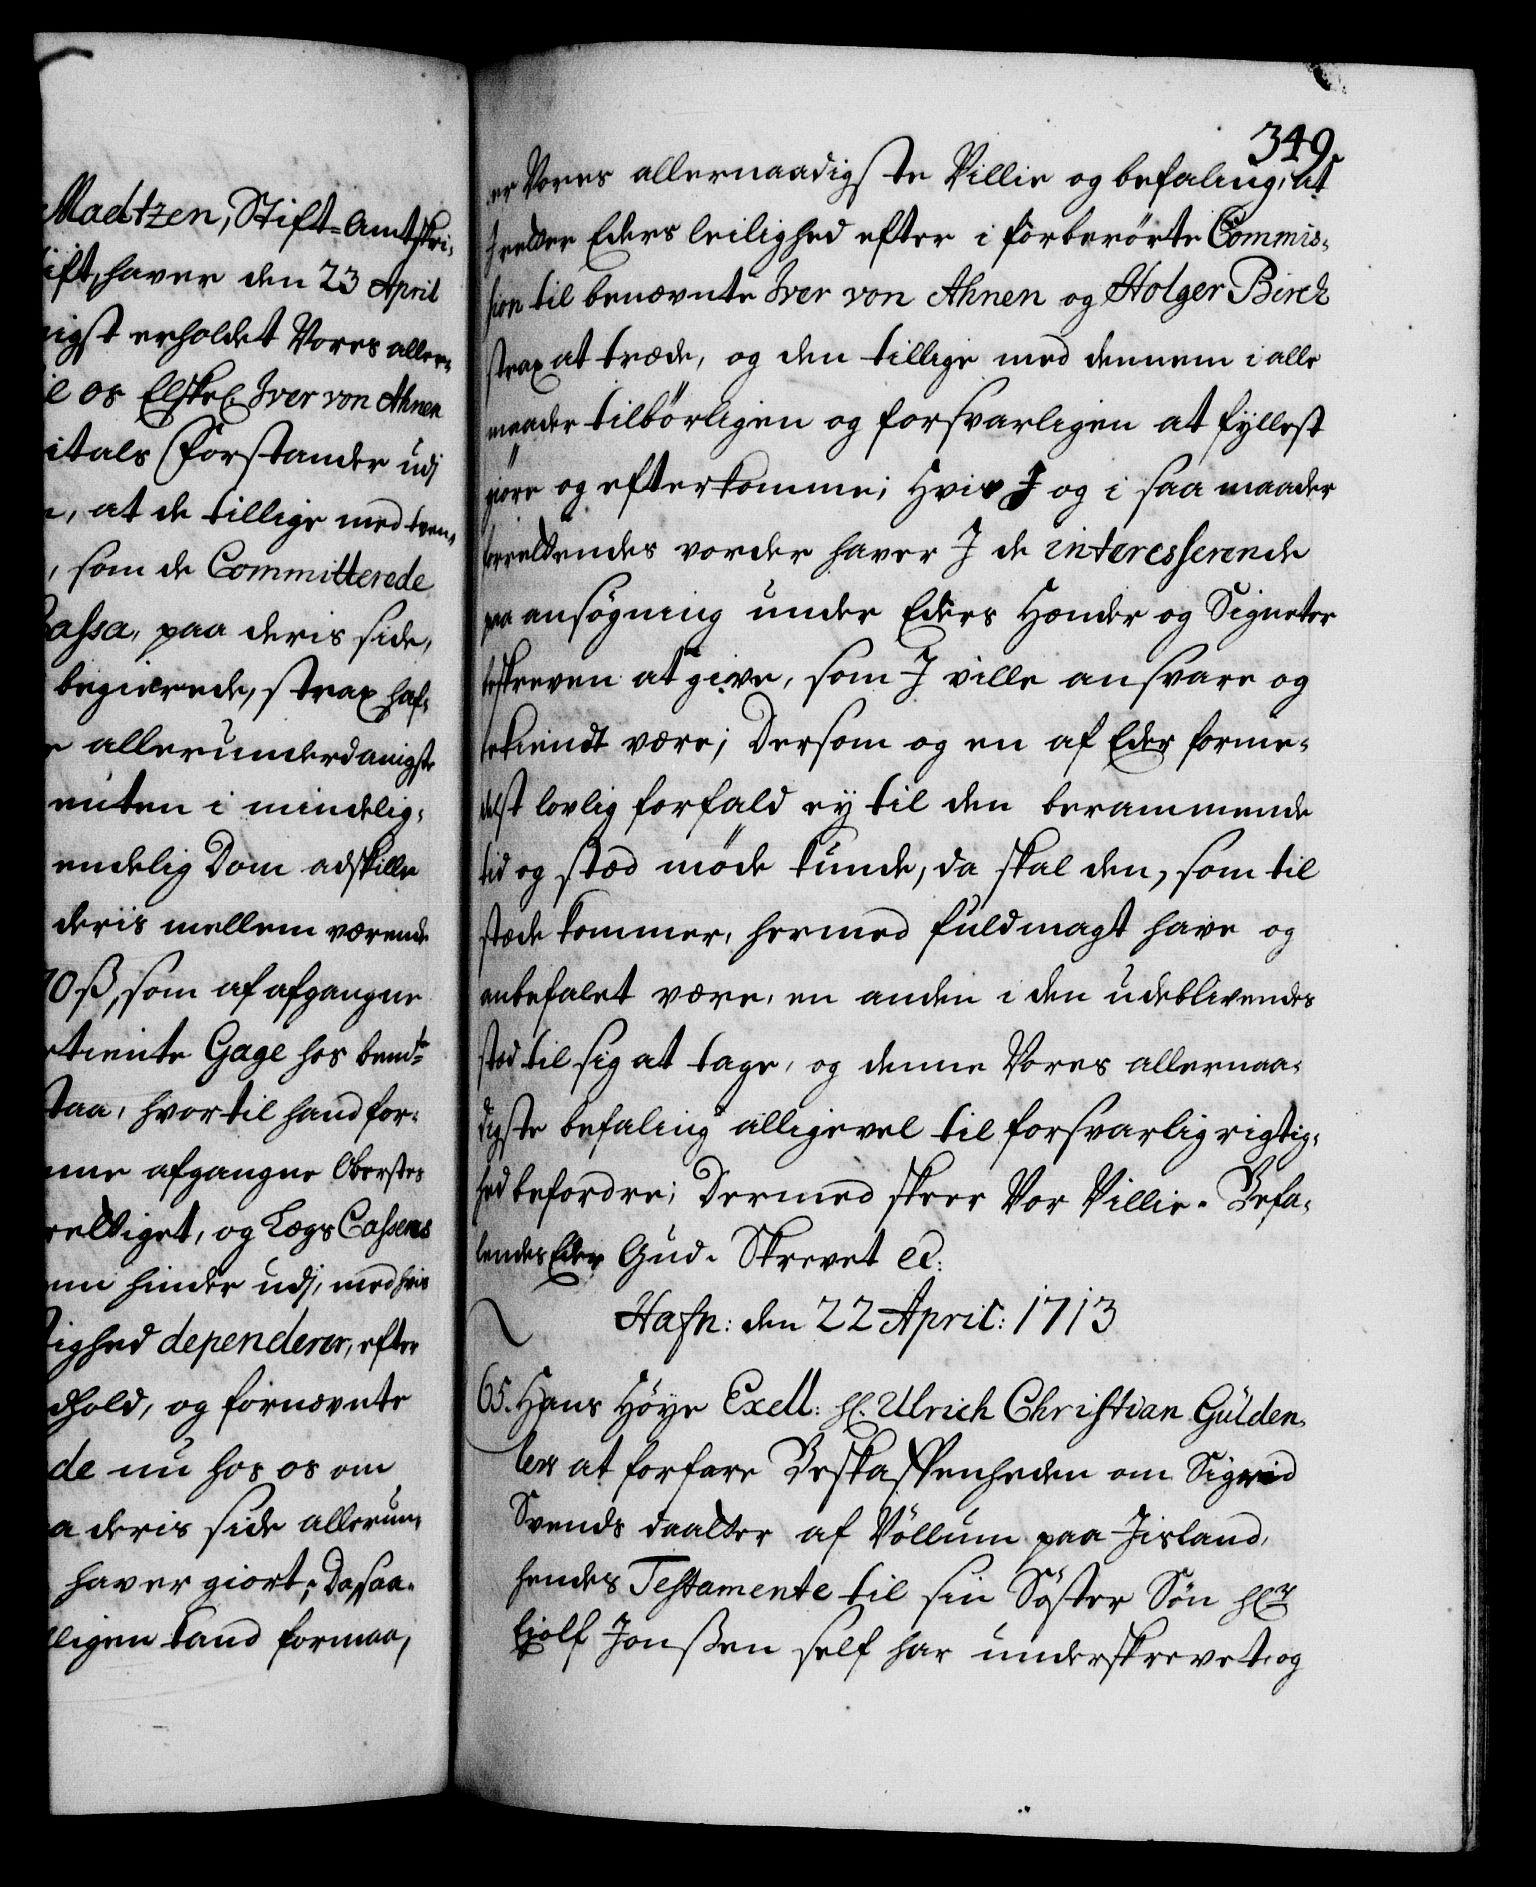 Madtzen, Stift-Amtskri-
ift, haver den 23 April
nigst erholdet Vores aller-
e os Elskel. Iver von Ahnen
itals Forstander udj
, at de tillige med tven-
, som de Committerede
Cassa, paa deris side,
begierede, strax haf-
e allerunderdanigste
enten i mindelig-
endelig Dom adskille
deris mellem værende
10 ß, som af afgangne
rtiente Gage hos bemdte
staa, hvortil hand for-
nne afgangne Oberstes
reltiget, og Lægs Cassens
nn hinder udj, med hvis
ighed dependerer, efter
dhold, og fornævnte
de nu hos os om
a deris side allerun-
haver giort; Da saa-
ligen tand formaa,
349.
er Vores allernaadigste Villie og befaling, at
I retter Eders leilighed efter i forberörte Commis-
sion til benævnte Iver von Ahnen og Holger Birch
strax at træde, og den tillige med dennem i alle
maader tilbörligen og forsvarligen at fyllest
giöre og efterkomme; Hvis I og i saa maader
forrettendes vorder haver I de interesserende
paa ansögning under Eders Hænder og Signeter
beskreven at give, som I ville ansvare og
bekiendt være; Dersom og en af Eder forme-
delst lovlig forfald ey til den berammende
tid og stæd möde kunde, da skal den, som til
stæde kommer, hermed fuldmagt have og
anbefalet være, en anden i den udeblivendes
stæd til sig at tage, og denne Vores allernaa-
digste befaling alligevel til forsvarlig rigtig-
hed befordre; Dermed skeer Vor Villie. Befa-
lendes Eder Gud. Skrevet etc:
Hafn: den 22 April: 1713
65. Hans Höye Excell: Hl. Ulrich Christian Gülden-
lew at forfare Beskaffenheden om Sigrid
Svends daatter af Völlum paa Jisland,
hendes Testamente til sin Söster Sön Hlr
Eiolf Jonßen self har underskrevet, og